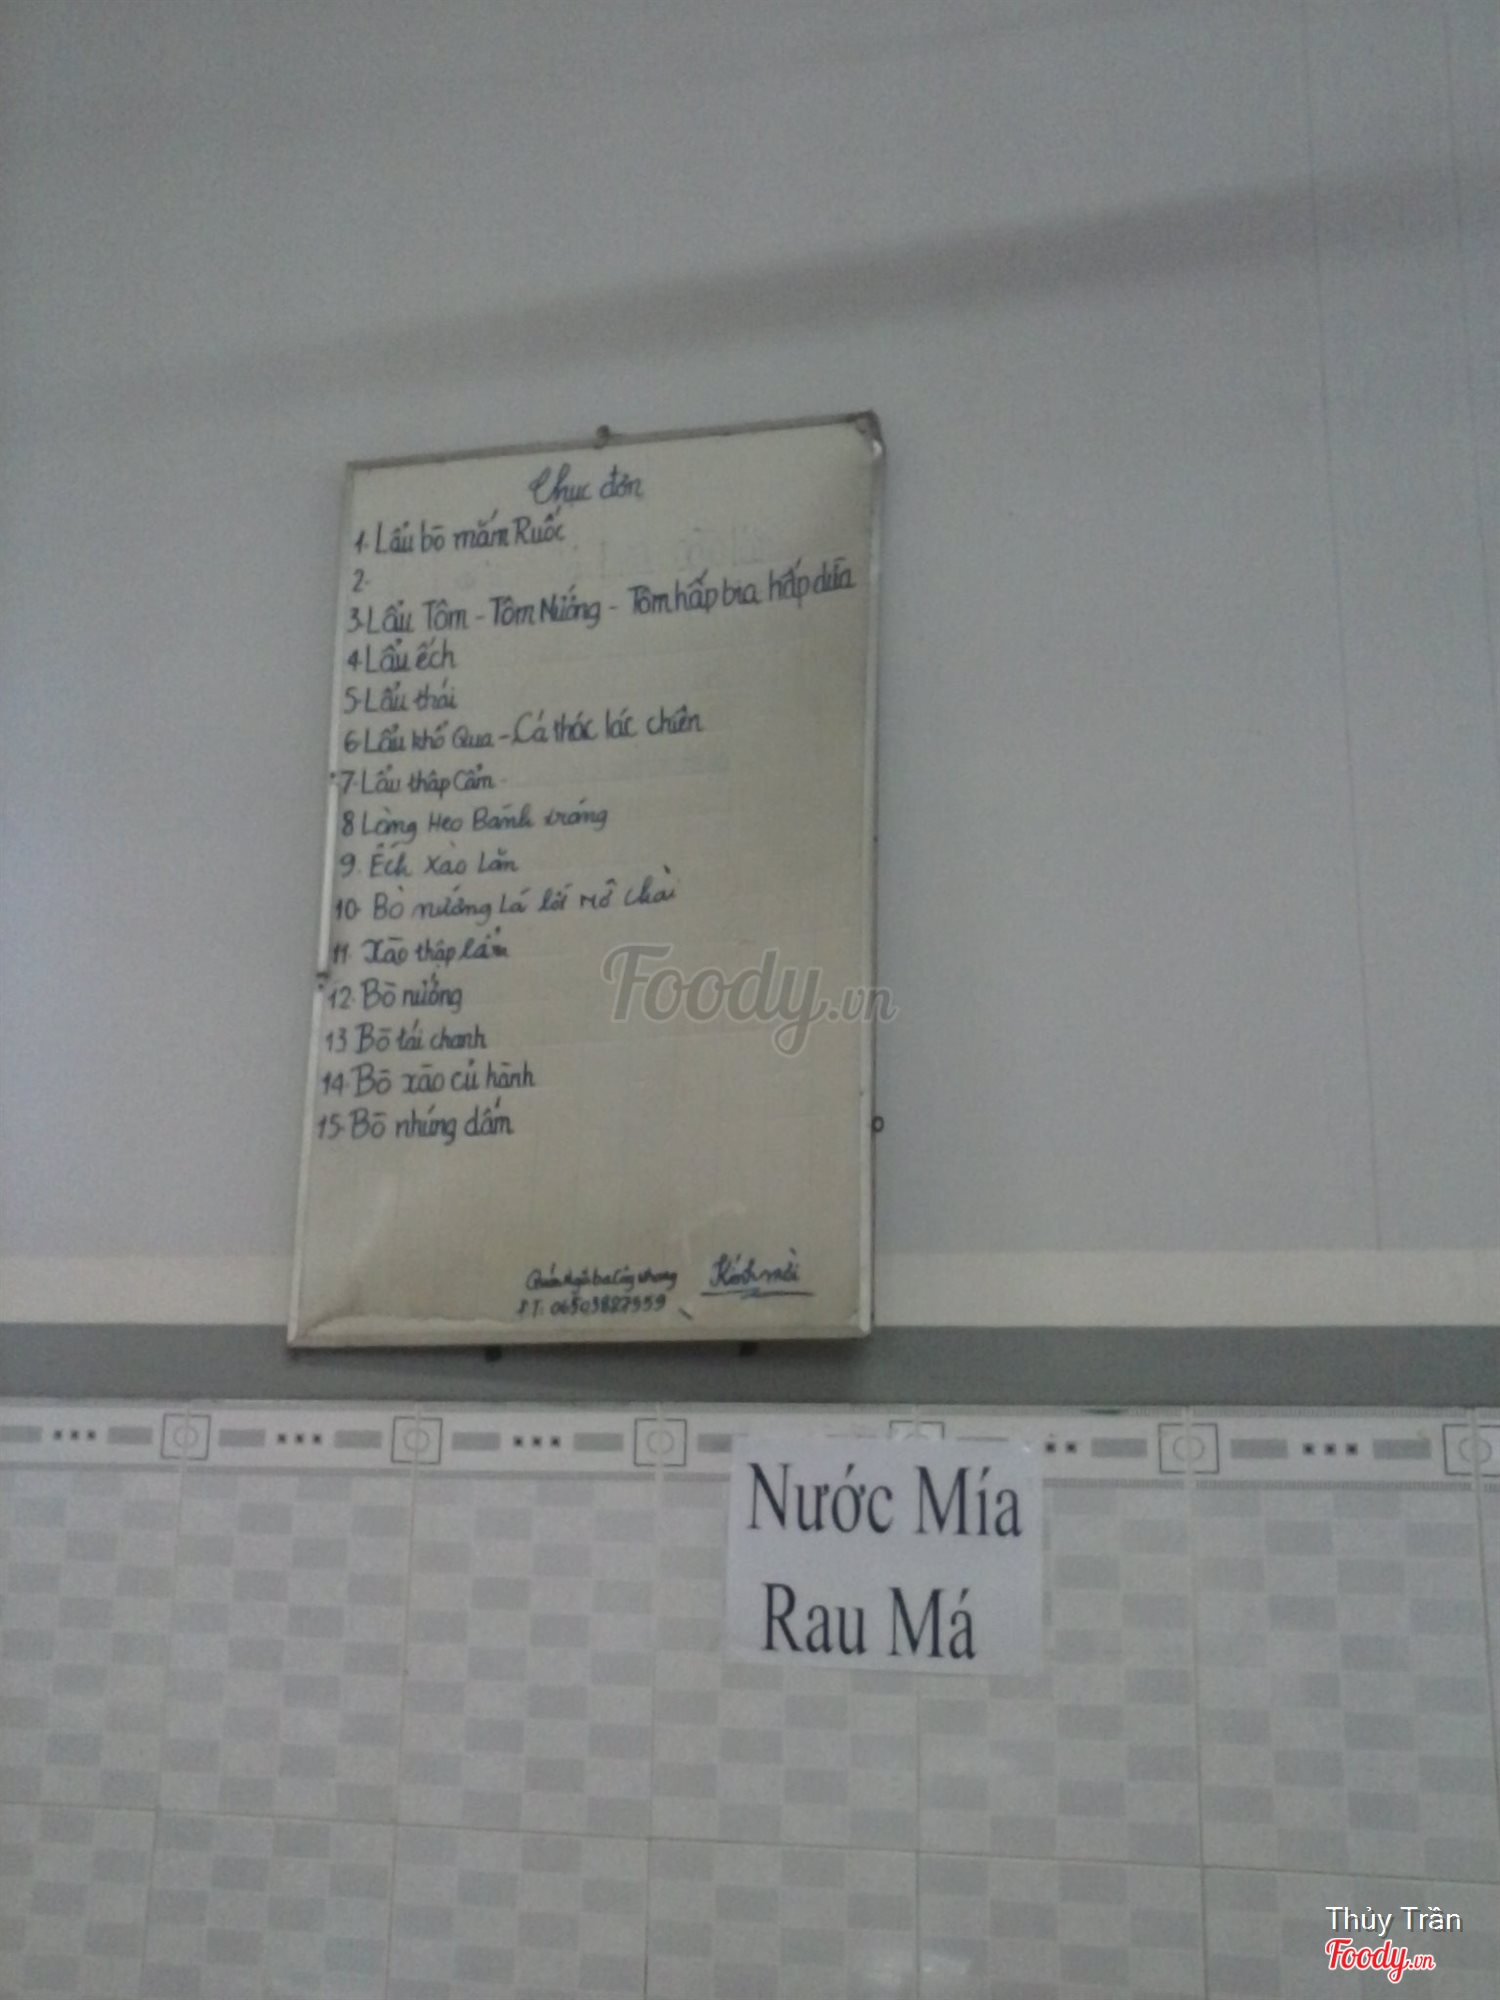 Thực đơn
1. Lẩu bò mắm Ruốc
2.
3. Lẩu Tôm - Tôm Nướng - Tôm hấp bia hấp dừa
4 Lẩu ếch
5. Lẩu thái
6 Lẩu khổ Qua - Cá thác lác chiên
7. Lẩu thập Cẩm
8 Lòng Heo Bánh tráng
9. Ếch Xào Lăn
10. Bò nướng Lá lốt mỡ chài
11. Xào thập cẩm
12. Bò nướng
13 Bò tái chanh
14. Bò xào củ hành
15. Bò nhúng dấm
Quán Ngã ba
Kính mời
ĐT: 06503827559
Foody.vn
Nước Mía
Rau Má
Thủy Trần
Foody.vn